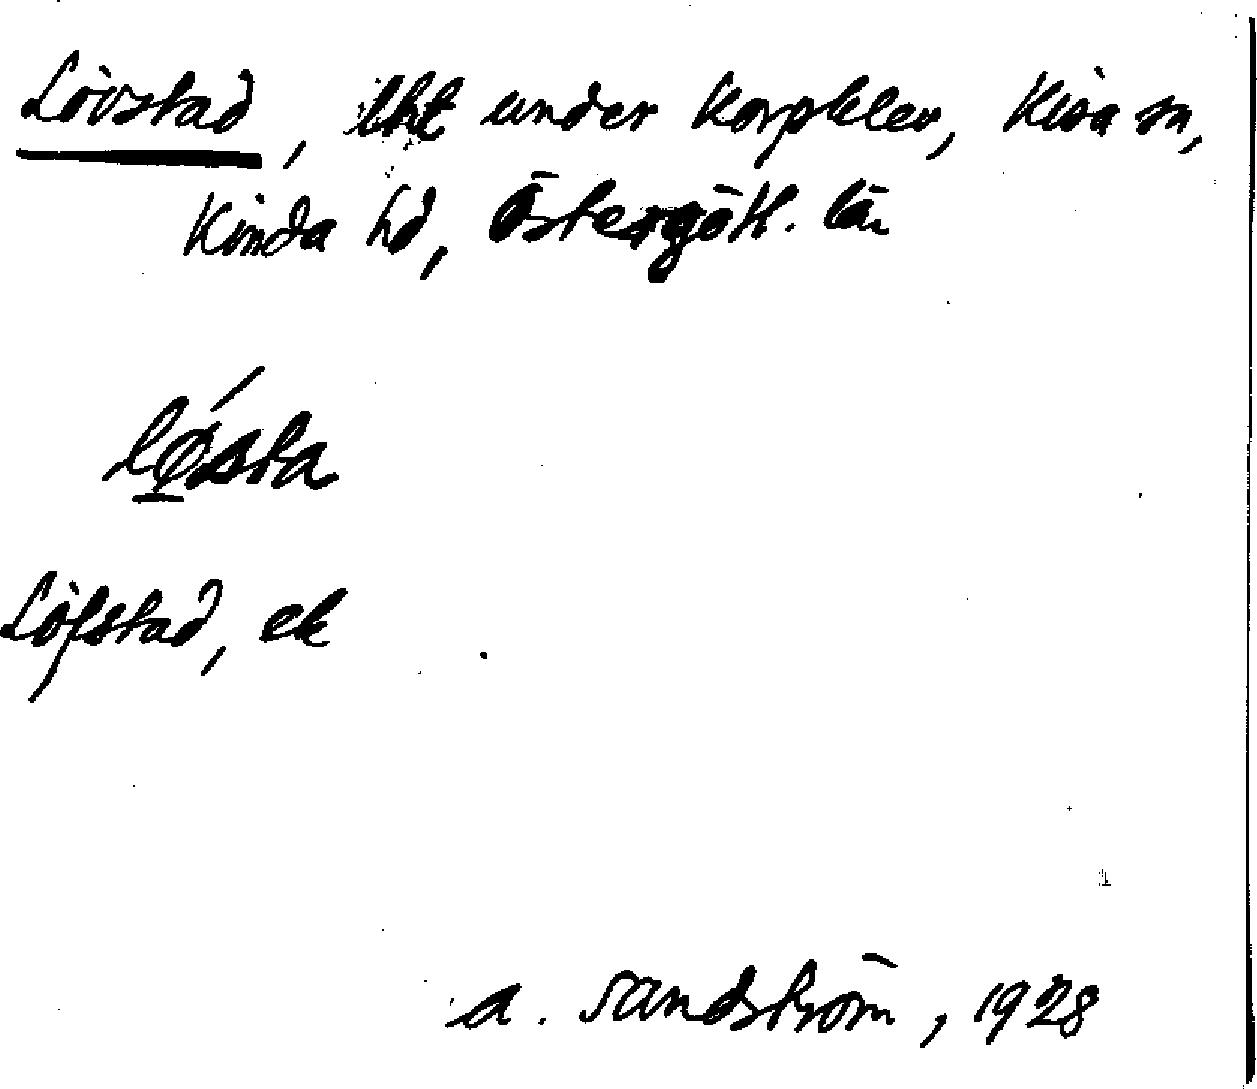 Lövstad, lht under Korpklev, Kisa sn,
Kinda hd, Östergötl. län
Löfstad, ek
A. Sandström, 1928